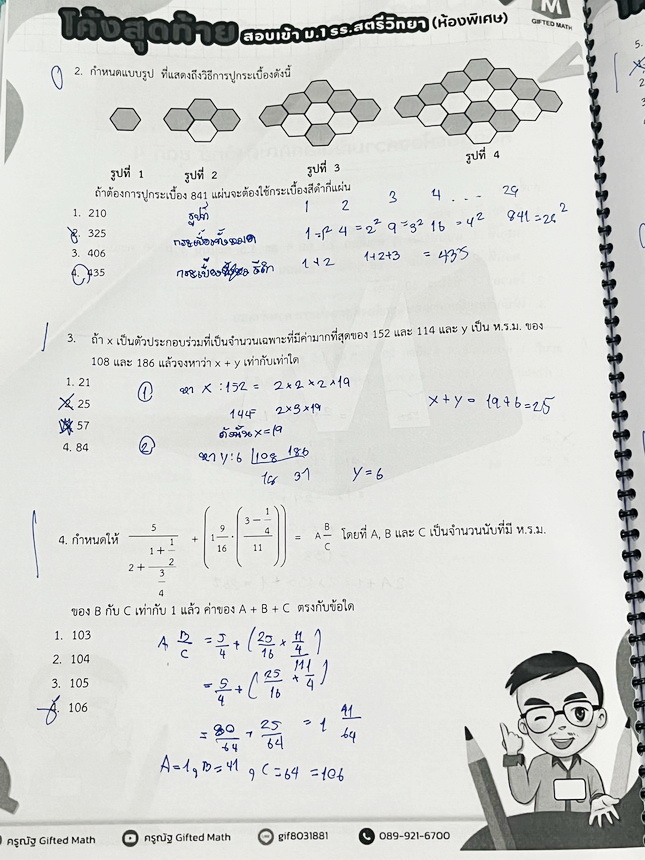 โค้งสุดท้าย สอบเข้า ม.1 รร.สตรีวิทยา (ห้องพิเศษ)
M
GIFTED MATH
2. กำหนดแบบรูป ที่แสดงถึงวิธีการปูกระเบื้องดังนี้
รูปที่ 1 รูปที่ 2 รูปที่ 3 รูปที่ 4
ถ้าต้องการปูกระเบื้อง 841 แผ่นจะต้องใช้กระเบื้องสีดำกี่แผ่น
1. 210
2. 325
3. 406
4. 435
รูปที่ 1 2 3 4 ... 29
กระเบื้องทั้งหมด 1=1² 4=2² 9=3² 16=4² 841=29²
สีดำ 1+2 1+2+3 = 435
3. ถ้า x เป็นตัวประกอบร่วมที่เป็นจำนวนเฉพาะที่มีค่ามากที่สุดของ 152 และ 114 และ y เป็น ห.ร.ม. ของ
108 และ 186 แล้วจงหาว่า x + y เท่ากับเท่าใด
1. 21
2. 25
3. 57
4. 84
① หา X : 152 = 2×2×2×19
144= 2×3×19
ดังนั้น x=19
② หา y : 6 108 186
18 31 Y=6
x+y = 19+6=25
4. กำหนดให้ 5/(2+(1+1/2)/(3/4)) + (1 9/16 · ((3-1/4)/11)) = A B/C โดยที่ A, B และ C เป็นจำนวนนับที่มี ห.ร.ม.
ของ B กับ C เท่ากับ 1 แล้ว ค่าของ A + B + C ตรงกับข้อใด
1. 103
2. 104
3. 105
4. 106
A B/C = 5/4 + (25/16 × 11/4 / 11)
= 5/4 + (25/16 × 1/4)
= 80/64 + 25/64 = 1 41/64
A=1, B=41, C=64 =106
ครูณัฐ Gifted Math ครูณัฐ Gifted Math gif8031881 089-921-6700